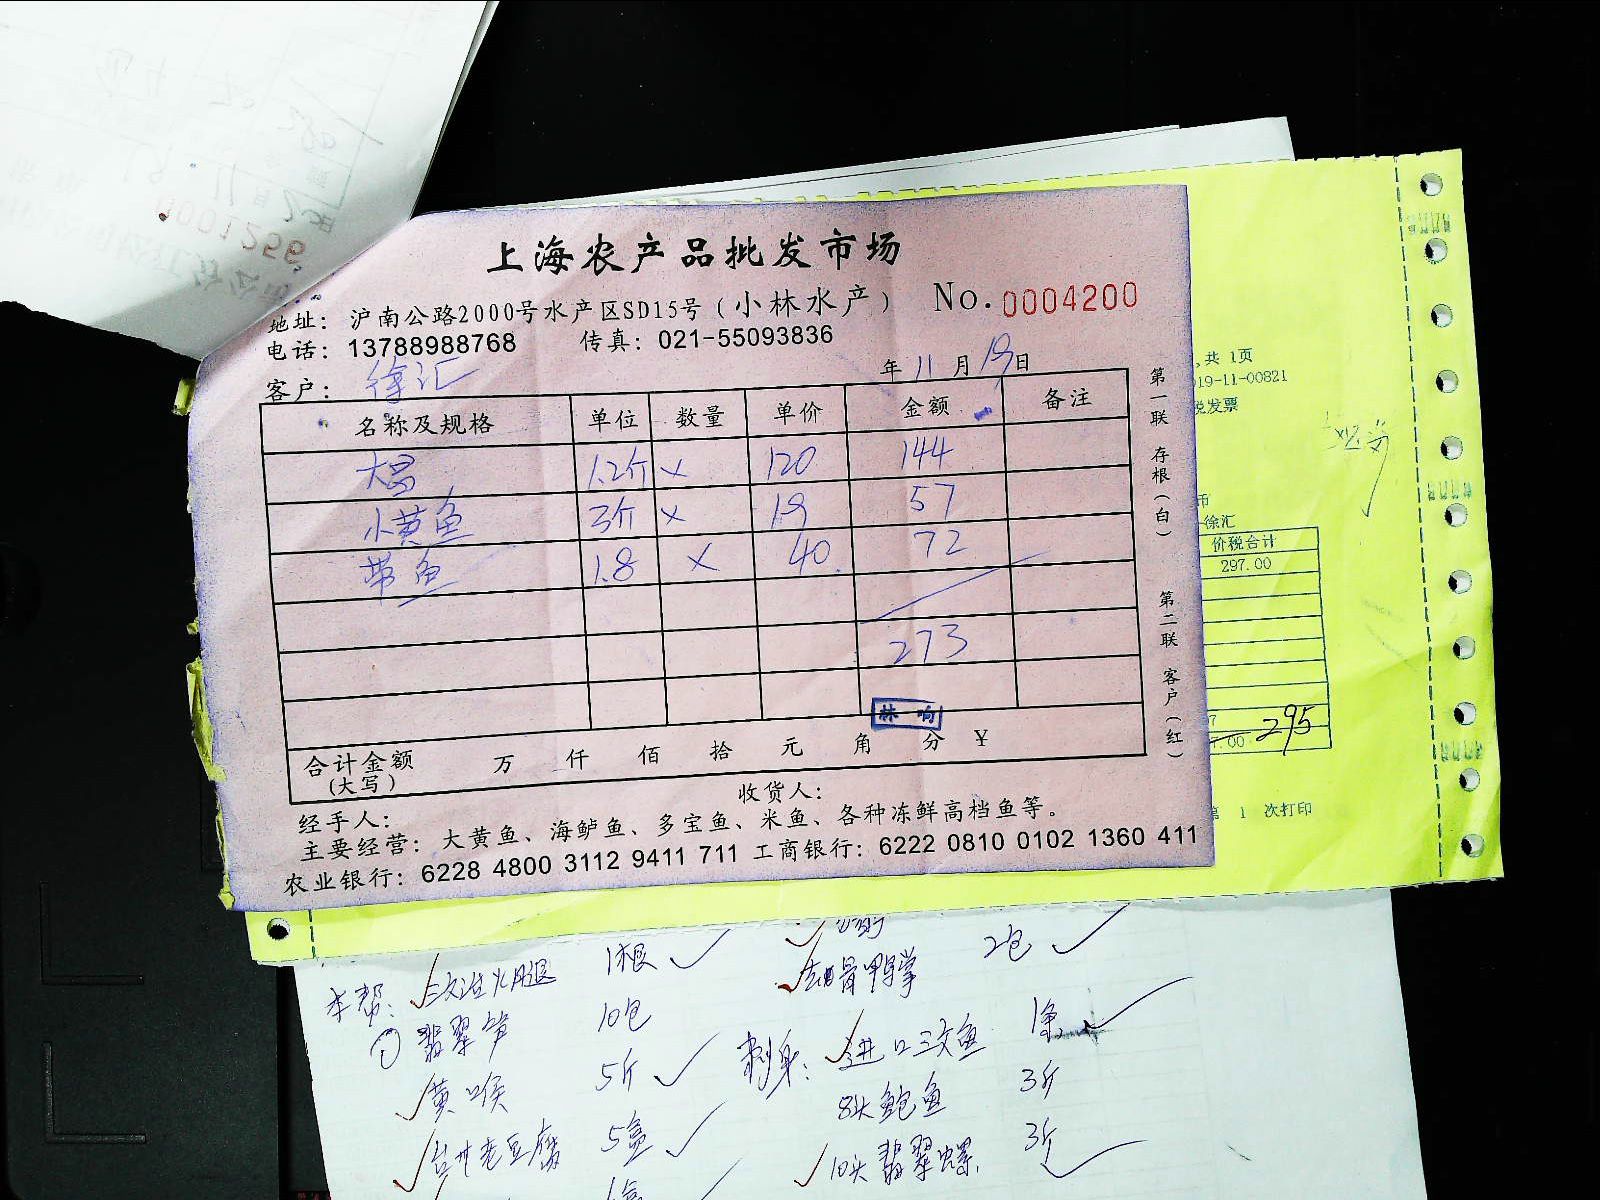 上海农产品批发市场
地址: 沪南公路2000号水产区SD15号(小林水产) No.0004200
电话: 13788988768 传真: 021-55093836
客户: 徐汇 年 11 月 19 日
名称及规格 单位 数量 单价 金额 备注
大昌 1.2斤 × 120 144
小黄鱼 3斤 × 19 57
带鱼 1.8 × 40. 72
273
林 响
合计金额 万 仟 佰 拾 元 角 分 ¥
(大写)
收货人:
经手人:
主要经营: 大黄鱼、海鲈鱼、多宝鱼、米鱼、各种冻鲜高档鱼等。
农业银行: 6228 4800 3112 9411 711 工商银行: 6222 0810 0102 1360 411
第一联 存根(白) 第二联 客户(红)
0001256
,共 1页
19-11-00821
税发票
币
徐汇
价税合计
297.00
7.00 295
第 1 次打印
本帮: 火腿 1根
① 翡翠笋 10包
黄喉 5斤
台州老豆腐 5盒
去骨鸭掌 2包
刺身: 进口三文鱼 1条
8头鲍鱼 3斤
10头翡翠螺 3斤